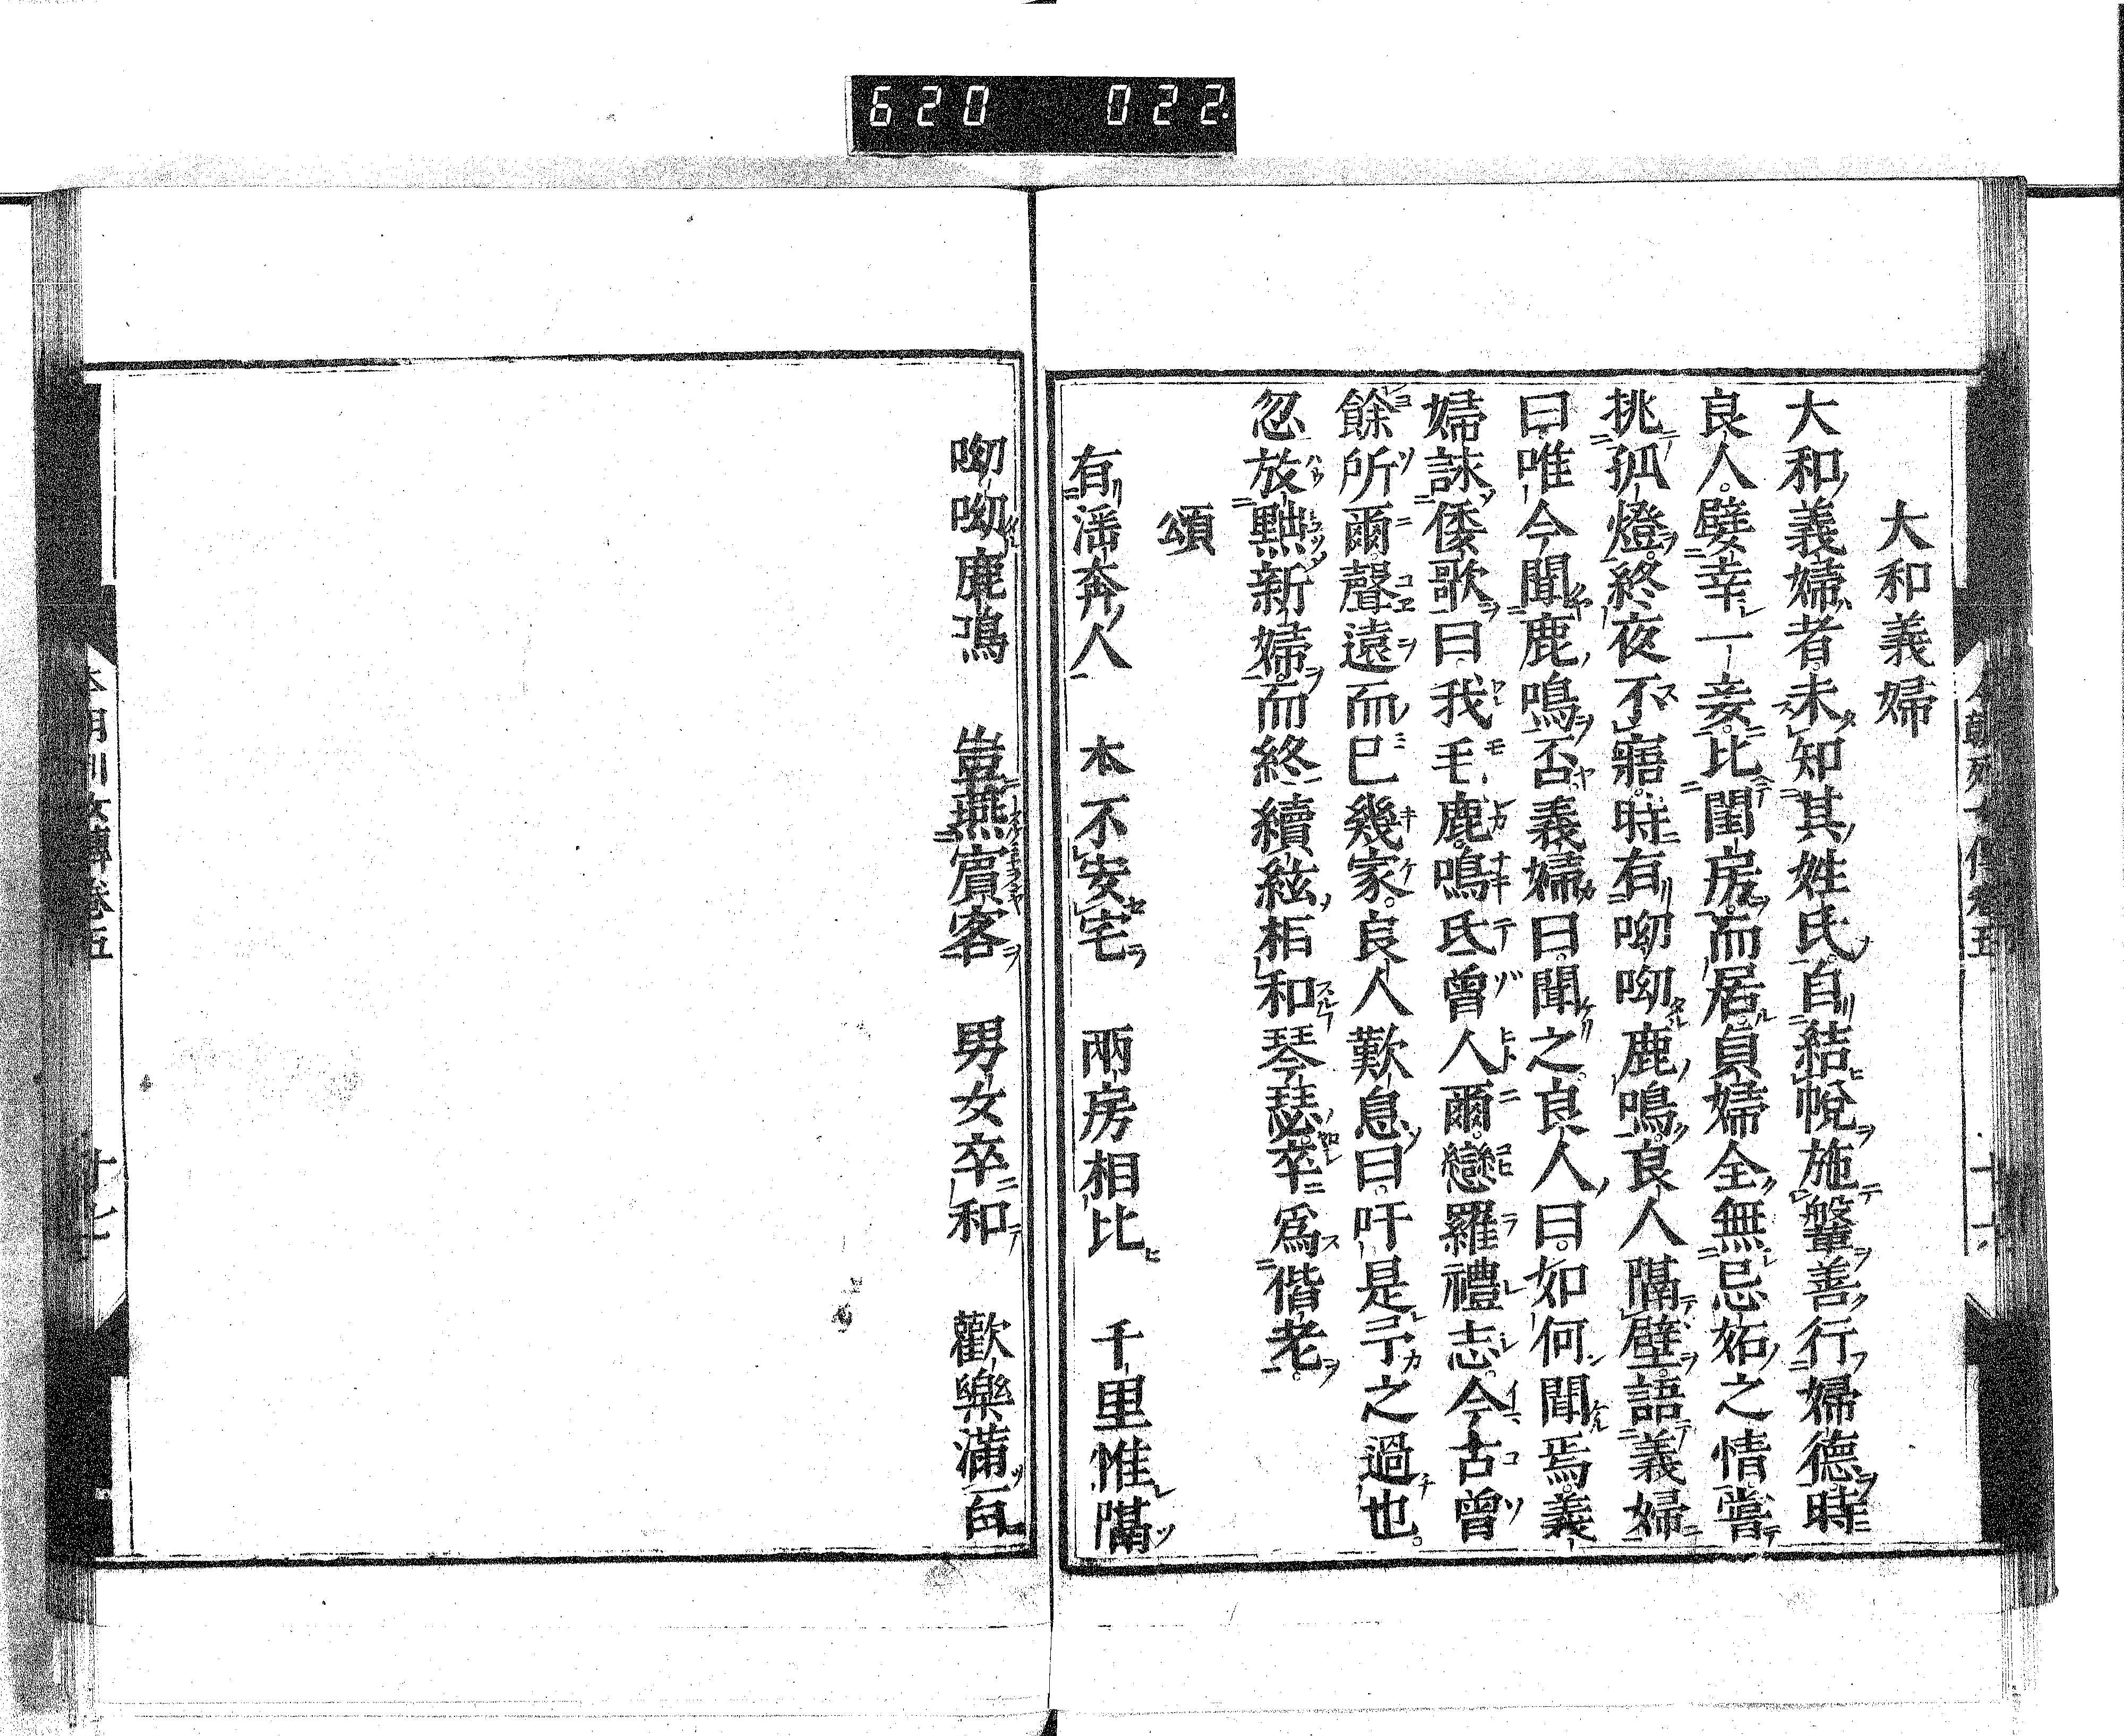 620 022
大和義婦
大和義婦者未知其姓氏自結帨施鞶善行婦德時
良人嬖幸一妾比閨房而居貞婦全無忌妬之情嘗
挑孤燈終夜不寤時有呦呦鹿鳴良人隔壁語義婦
曰唯今聞鹿鳴否義婦曰聞之良人曰如何聞焉義
婦詠倭歌曰我毛鹿鳴氐曾人爾戀羅禮志今古曾
餘所爾聲遠而巳幾家良人歎息曰吁是予之過也
忽放黜新婦而終續絃柜和琴瑟卒爲偕老
頌
有淫奔人 本不安宅 兩房相比 千里惟隔
呦呦鹿鳴 豈燕賓客 男女卒和 歡樂滿百
本朝列女傳卷五 十七